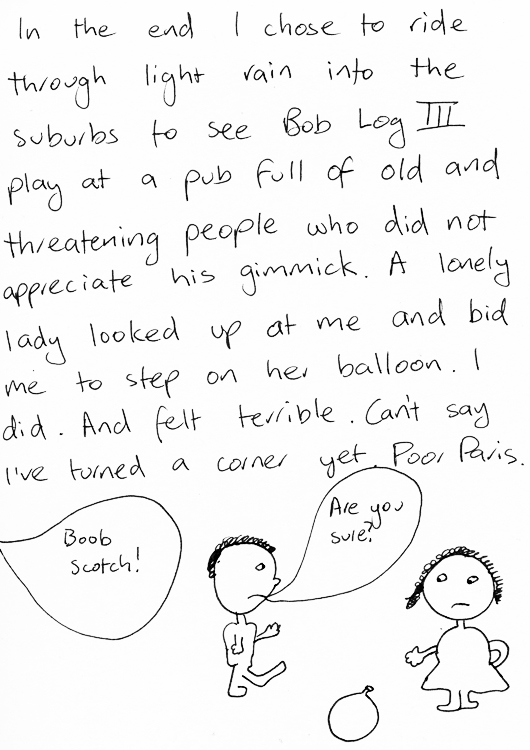 In the end I chose to ride
through light rain into the
suburbs to see Bob Log III
play at a pub full of old and
threatening people who did not
appreciate his gimmick. A lonely
lady looked up at me and bid
me to step on her balloon. I
did. And felt terrible. Can't say
I've turned a corner yet. Poor Paris.
Boob
Scotch!
Are you
sure?